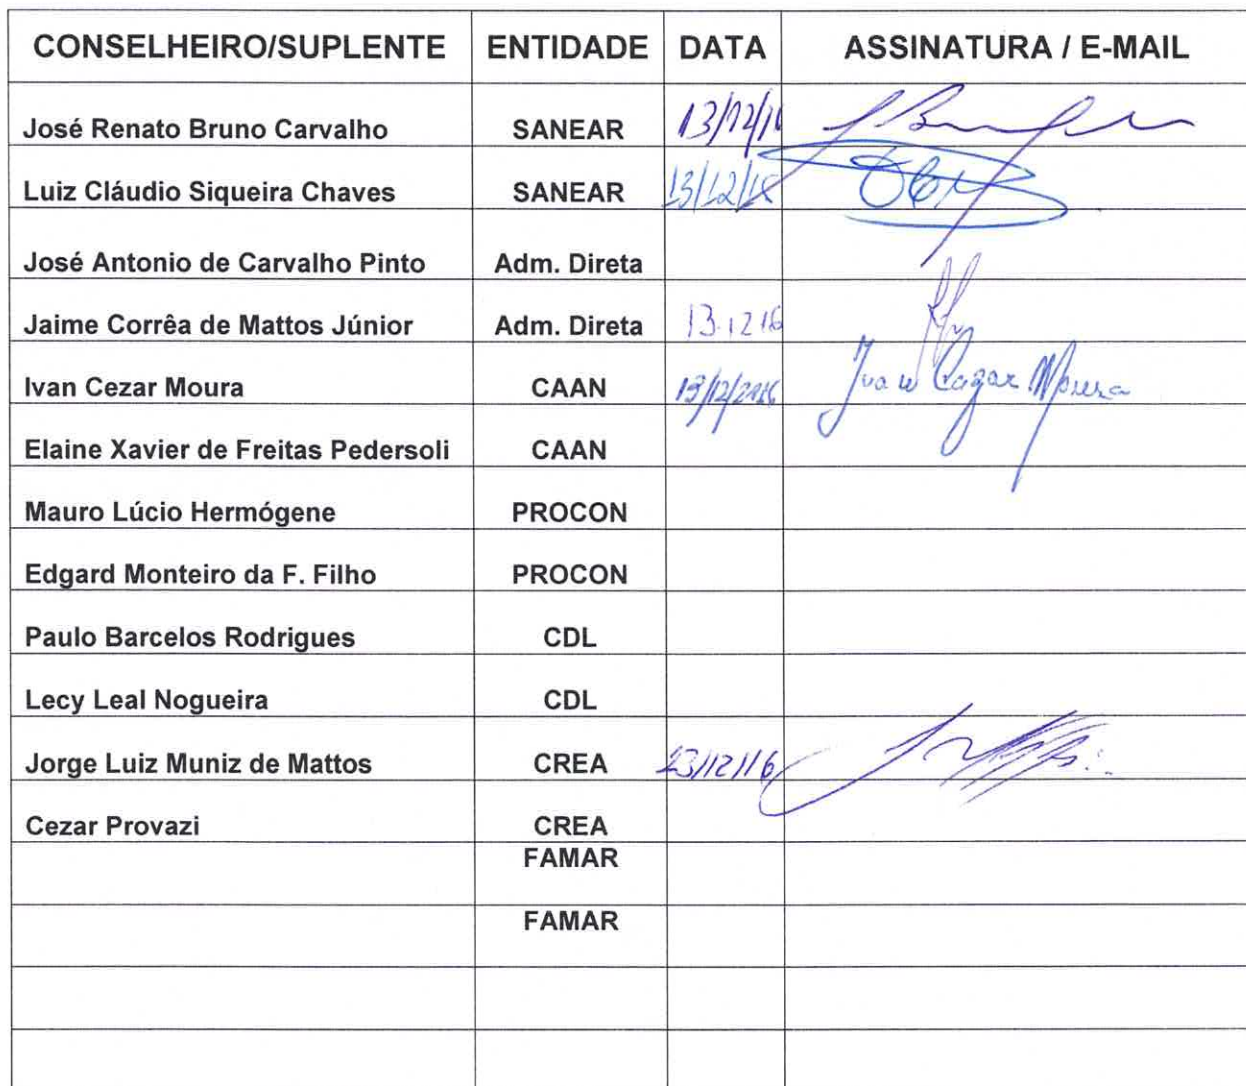 CONSELHEIRO/SUPLENTE ENTIDADE DATA ASSINATURA / E-MAIL
José Renato Bruno Carvalho SANEAR 13/12/16
Luiz Cláudio Siqueira Chaves SANEAR 13/12/16
José Antonio de Carvalho Pinto Adm. Direta
Jaime Corrêa de Mattos Júnior Adm. Direta 13.12 16
Ivan Cezar Moura CAAN 13/12/2016 Ivan Cezar Moura
Elaine Xavier de Freitas Pedersoli CAAN
Mauro Lúcio Hermógene PROCON
Edgard Monteiro da F. Filho PROCON
Paulo Barcelos Rodrigues CDL
Lecy Leal Nogueira CDL
Jorge Luiz Muniz de Mattos CREA 23/12/16
Cezar Provazi CREA
FAMAR
FAMAR